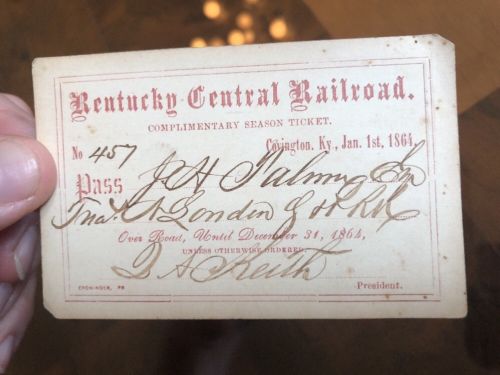 Kentucky Central Railroad.
COMPLIMENTARY SEASON TICKET.
Covington, Ky., Jan. 1st, 1864.
No 457
Pass J H Palmer
Over Road, Until December 31, 1864,
UNLESS OTHERWISE ORDERED.
Keith
President.